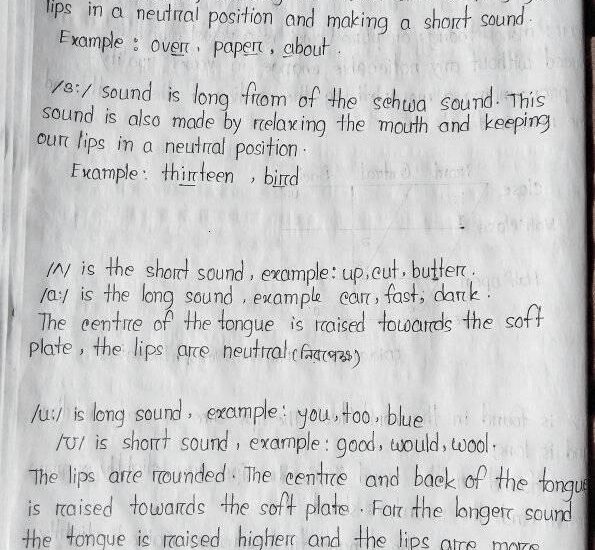 lips in a neutral position and making a short sound.
Example : over, paper, about.
/ɜ:/ sound is long from of the schwa sound. This
sound is also made by relaxing the mouth and keeping
our lips in a neutral position.
Example: thirteen, bird
/ʌ/ is the short sound, example: up, cut, butter.
/a:/ is the long sound, example car, fast, dark.
The centre of the tongue is raised towards the soft
plate, the lips are neutral (নিরপেক্ষ)
/u:/ is long sound, example: you, too, blue
/ʊ/ is short sound, example: good, would, wool.
The lips are rounded. The centre and back of the tongue
is raised towards the soft plate. For the longer sound
the tongue is raised higher and the lips are more